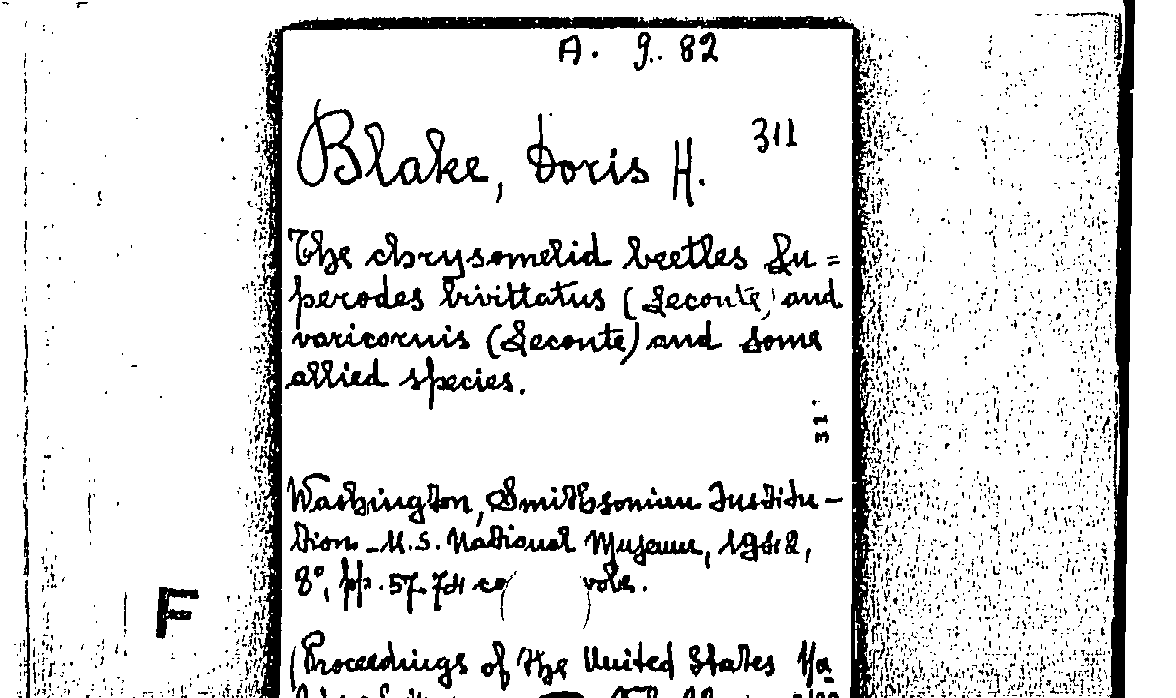 A. 9. 82
Blake, Doris H. 311
The chrysomelid beetles Lu=
perodes bivittatus (Leconte) and
varicornis (Leconte) and some
allied species.
311
Washington, Smithsonian Institu-
tion - U.S. National Museum, 1942,
8°, pp. 57-74 co
F
(Proceedings of the United States Na